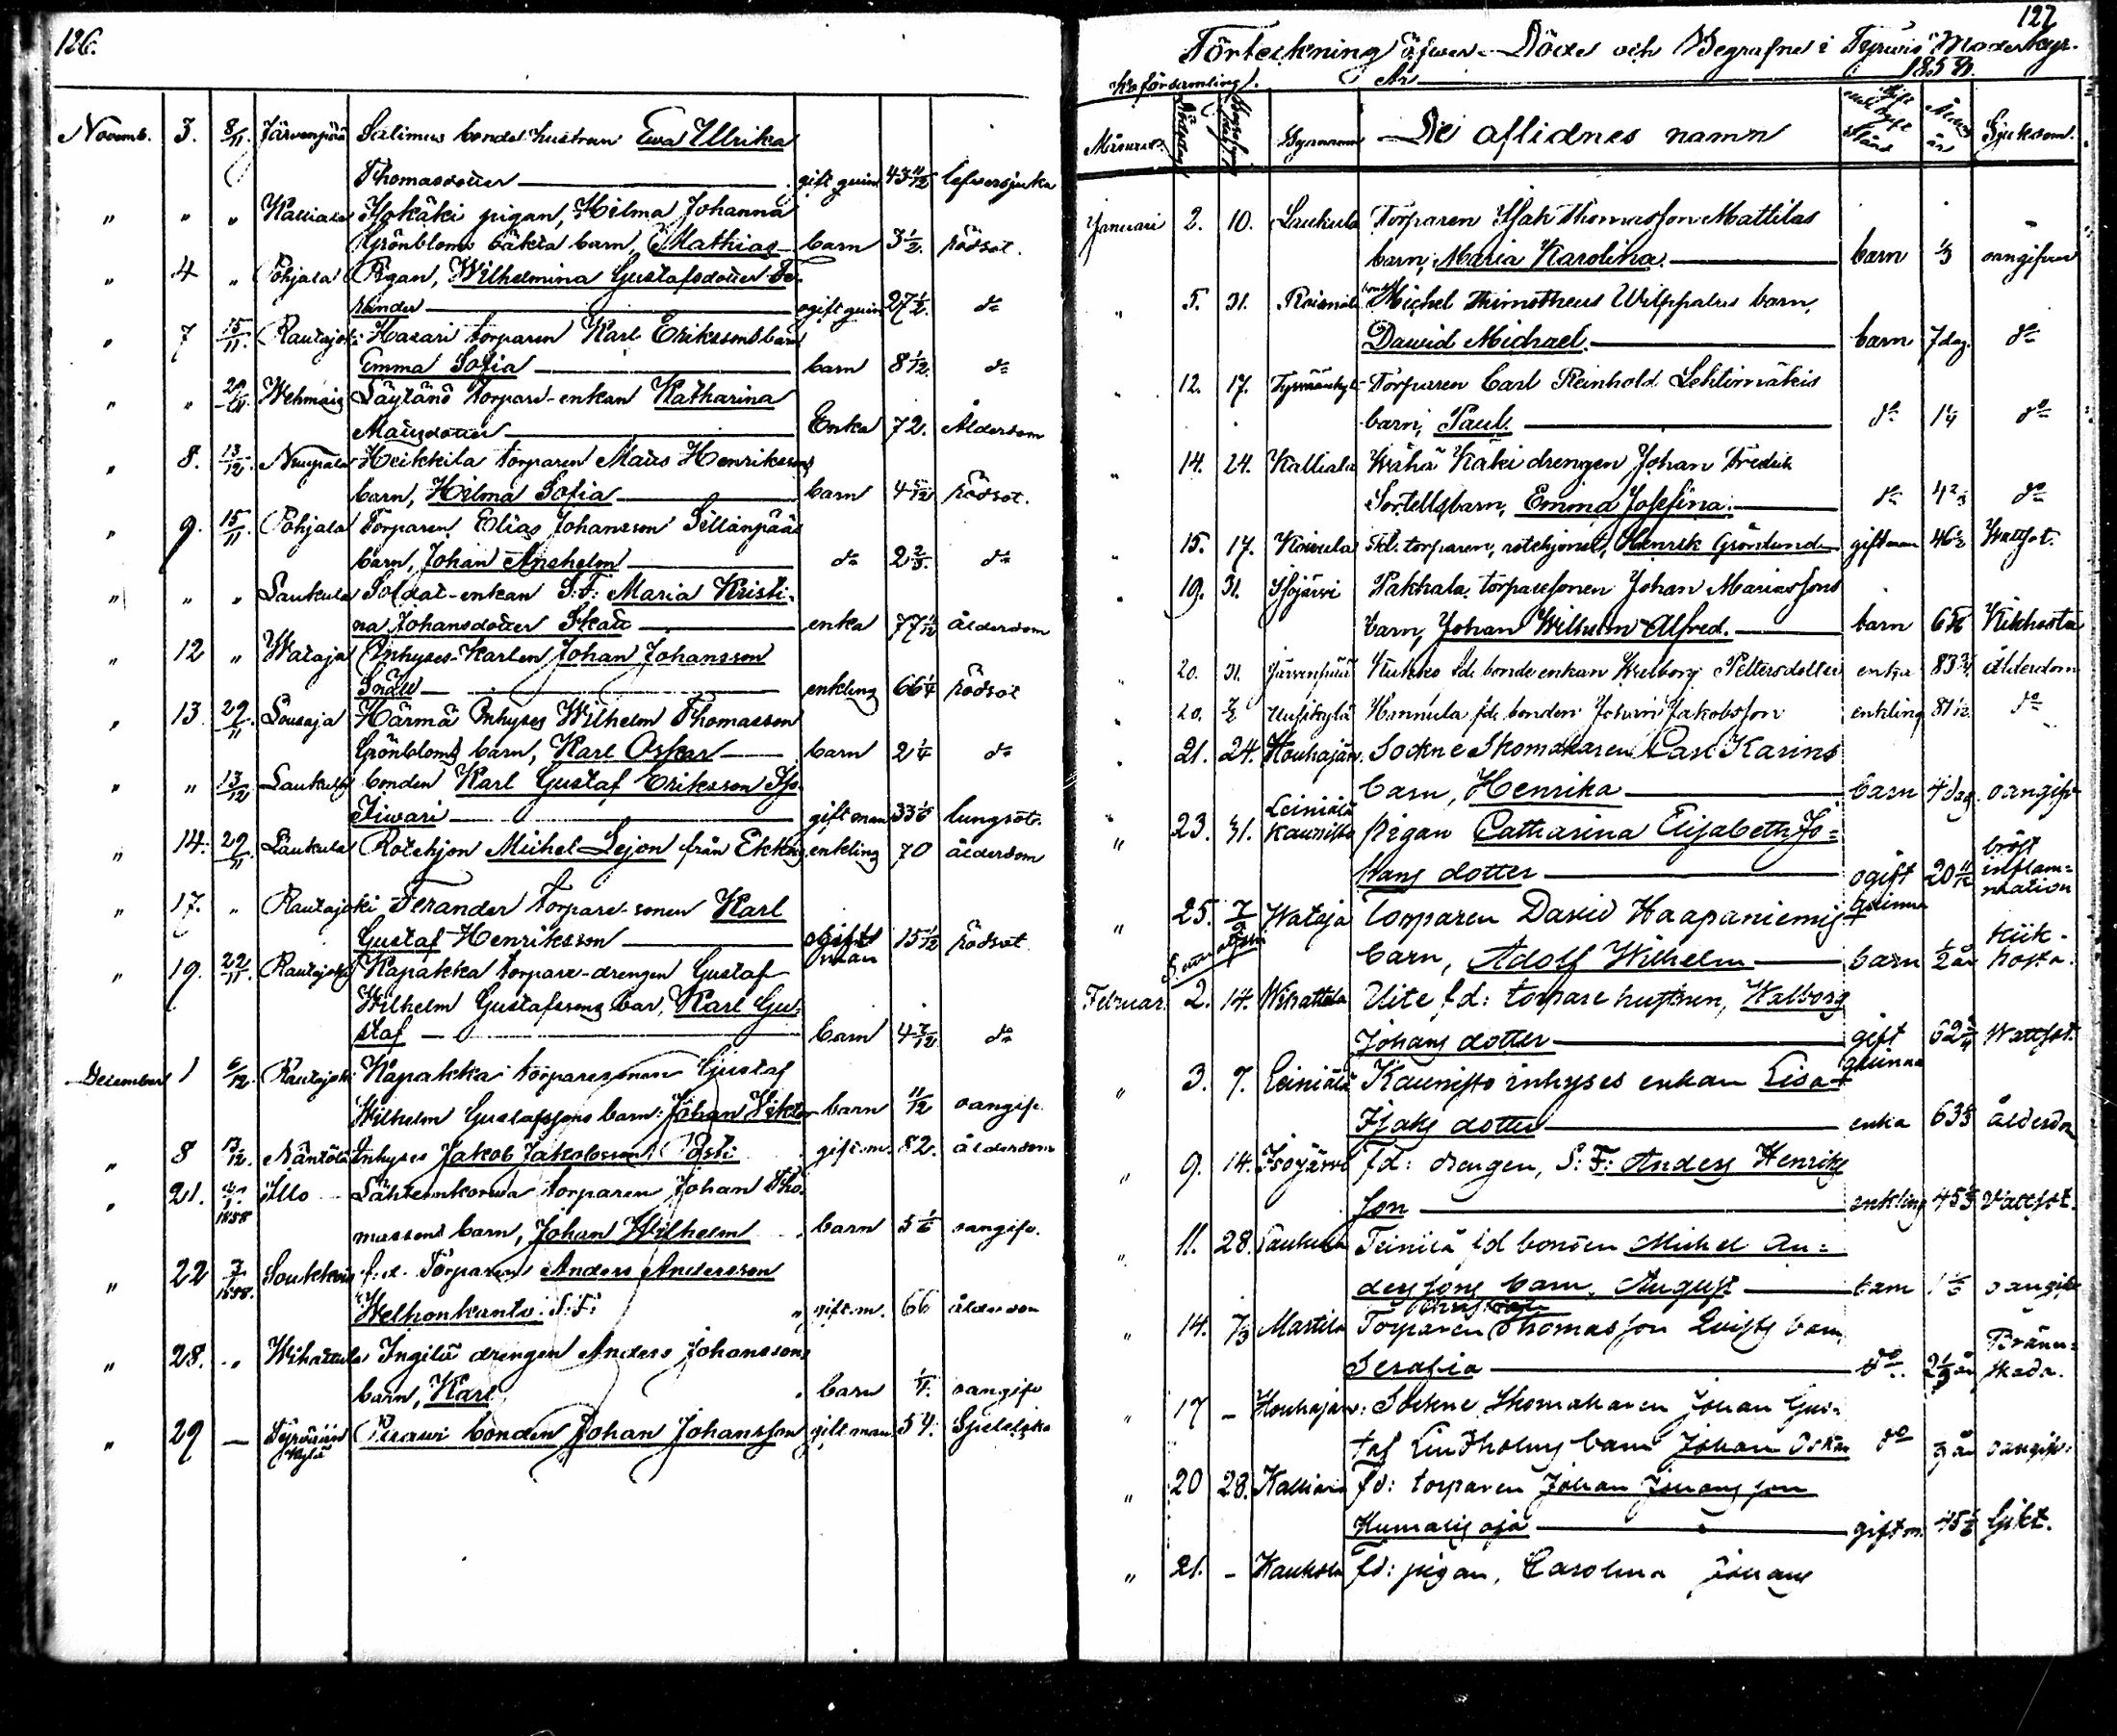 126.
Novemb. 3. 8/11. Järvenpää Salimus bonde hustrun Ewa Ulrika
Thomasdotter gift quin 43 11/12 lefversjuka
" " " Kalliala Isokäki pigan, Hilma Johanna
Grönbloms oäkta barn, Mathias barn 3 1/2. rödsot.
" 4 " Pohjala Pigan, Wilhelmina Gustafsdotter Te-
rander ogift quin 27 1/2. do
" 7 15/11. Rautajoki Hasari torparen Karl Erikssons barn
Emma Sofia barn 8 1/12. do
" " Wehmaa Läytänö torpare-enkan Katharina
Matsdotter Enka 72. Ålderdom
" 8. 13/12. Nuupala Heikkila torparen Mats Henrikssons
barn, Hilma Sofia barn 4 5/12 rödsot.
" 9. 15/11 Pohjala Torparen Elias Johansson Sillanpääs
barn, Johan Anshelm do 2 2/3. do
" " " Laukula Soldat-enkan S.F: Maria Kristi-
na Johansdotter Skatt enka 77 ålderdom
" 12 " Wataja Inhyses-karlen Johan Johansson
Snäll enkling 66 1/4 rödsot
" 13. 29/11 Sousaja Härmä Inhyses Wilhelm Thomasson
Grönbloms barn, Karl Oskar barn 2 1/4 do
" " 13/12 Laukula bonden Karl Gustaf Eriksson Iso-
Tiwari gift man 33 1/6 lungsot.
" 14. 29/11. Laukula Rotehjon Michel Lejon från Ekkois enkling 70 ålderdom
" 17. " Rautajoki Terander torpare-sonen Karl
Gustaf Henriksson ogift man 15 1/12 rödsot
" 19. 22/11. Rautajoki Kapakka torpare-drengen Gustaf
Wilhelm Gustafssons bar, Karl Gu-
staf barn 4 7/12 do
December 1 6/12 Rautajoki Kapakka torparesonen Gustaf
Wilhelm Gustafssons barn: Johan Viktor barn 11/12 oangif.
" 8 13/12. Näntölä Inhyses Jakob Jakobsson Posti gift m. 82. ålderdom
" 21. 1858 Illo Lähteenkorwa torparen Johan Tho-
massons barn, Johan Wilhelm barn 5 1/6 oangifv.
" 22 1858. Soukko f.d. Torparen Anders Andersson
Welhonkanto. S:F: " gift m. 66 ålderdom
" 28. " Wihattula Ingilä drengen Anders Johanssons
barn, Karl barn oangifv
" 29 — Tyrvään Kylä Pirawi bonden Johan Johansson gift man 54.
122
Förteckning öfwer Döde och Begrafne i Tyrwis Moderkyr-
koförsamling. År 1858.
Månad. Dödsdag Bynamn De aflidnes namn Gift ogift stånd Ålder år Sjukdom.
Januari 2. 10. Laukula Torparen Isak Thomasson Mattilas
barn, Maria Karolina. barn 1/3 oangifven
" 5. 31. Roismala bond Michel Thimotheus Wilppalas barn,
Dawid Michael. barn 7 dag. do
" 12. 17. Tyrväänkylä Torparen Carl Reinhold Lehtimäkis
barn, Paul. do 1 1/4 do
" 14. 24. Kalliala Wähä Käki drengen Johan Fredrik
Sortells barn, Emma Josefina. do 4 2/3 do
" 15. 17. Kaukola Fd. torparen, rotehjonet, Henrik Grönlund gift man 46 1/2 Wattsot.
" 19. 31. Isojärvi Pakkala, torparesonen Johan Mariassons
barn, Johan Wilhelm Alfred. barn 6 5/6 Kikhosta
" 20. 31. Järvenpää Kukko fd. bonde enkan Walborg Pettersdotter enka 83 3/4 ålderdom
" 20. Uusikylä Hannula fd. bonden Johan Jakobsson enkling 81 1/12. do
" 21. 24. Houhajär. Sockne Skomakaren Carl Karins
barn, Henrika barn 4 dag. oangifv
" 23. 31. Leiniälä Kaunisto Pigan Catharina Elisabeth Jo=
hans dotter ogift quinna 20 11/12 bröst inflam=mation
" 25. 7/2 Wataja Torparen David Haapaniemis
barn, Adolf Wilhelm barn 1/2 år kik-hosta.
Februar. 2. 14. Wihattula Uite fd: torpare hustrun, Walborg
Johans dotter gift quinna 62 3/4 Wattsot.
" 3. 7. Leiniälä Kaunisto inhyses enkan Lisa
Isaks dotter enka 63 ålderdom
" 9. 14. Isojärvi fd: drengen, S: F: Anders Henriks
son enkling 45 Wattsot.
" 11. 28. Laukula Teinilä fd bonden Michel An=
derssons barn, August barn 1 1/6 oangifv
" 14. 7/3 Martila Torparen Thomasson Qvists barn
Serafia do 2 1/3 år Bränn=skada.
" 17 - Houhajär: Sockne Skomakaren Johan Gus-
taf Lindholms barn Johan Oskar do 3 år oangifv.
" 20 28. Kalliala fd: torparen Johan Johans son
Humalis oja gift m. 45 1/6 Gikt.
" 21. - Kaukola fd: pigan, Carolina Johans